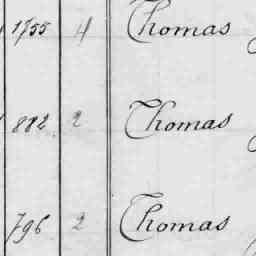 1755 4 Thomas
882 2 Thomas
796 2 Thomas